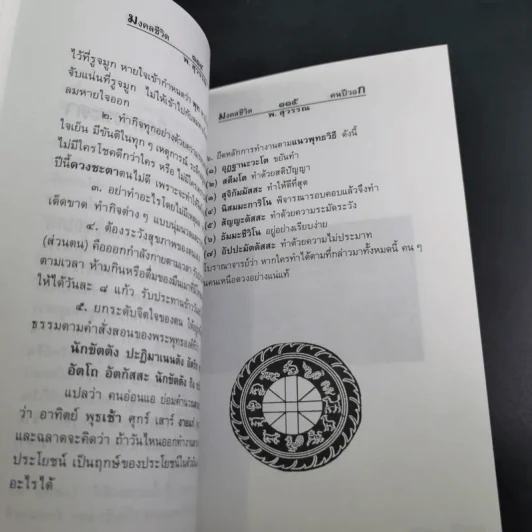 มงคลชีวิต ๑๑๔
พ. สุวรรณ
ไว้ที่รูจมูก หายใจเข้ากำหนดว่า พุท
จับแน่นที่รูจมูก ไม่ให้เข้าไปกับ
ลมหายใจออก
๒. ทำกิจทุกอย่างด้วยความ
ใจเย็น มีขันติในทุก ๆ เหตุการณ์
ไม่มีใครโชคดีกว่าใคร หรือ ไม่มี
ปีนี้ดวงชะตาตนไม่ดี เพราะจะทำให้
๓. อย่าทำอะไรโดยไม่
เด็ดขาด ทำกิจต่าง ๆ แบบนุ่มนวล
๔. ต้องระวังสุขภาพของตน
(ส่วนตน) คือออกกำลังกายตามเวลา
ตามเวลา ห้ามกินหรือดื่มของมึนเมา
ให้ได้วันละ ๘ แก้ว รับประทานข้าว
๕. ยกระดับจิตใจของตน ให้
ธรรมตามคำสั่งสอนของพระพุทธองค์
นักขัตตัง ปะฏิมาเนนตัง
อัตโถ อัตถัสสะ นักขัตตัง
แปลว่า คนอ่อนแอ ย่อมคำนวณ
ว่า อาทิตย์ พุธเช้า ศุกร์ เสาร์
และฉลาดจะคิดว่า ถ้าวันไหนออกทำงาน
ประโยชน์ เป็นฤกษ์ของประโยชน์ในตัว
อะไรได้
มงคลชีวิต ๑๑๕ คนปีวอก
พ. สุวรรณ
๖. ยึดหลักการทำงานตามแนวพุทธวิธี ดังนี้
(๑) อุฏฐานะวะโต ขยันทำ
(๒) สติมโต ทำด้วยสติปัญญา
(๓) สุจิกัมมัสสะ ทำให้ดีที่สุด
(๔) นิสมมะการิโน พิจารณารอบคอบแล้วจึงทำ
(๕) สัญญะตัสสะ ทำด้วยความระมัดระวัง
(๖) ธัมมะชีวิโน อยู่อย่างเรียบง่าย
(๗) อัปปะมัตตัสสะ ทำด้วยความไม่ประมาท
โบราณาจารย์ว่า หากใครทำได้ตามที่กล่าวมาทั้งหมดนี้ คน ๆ
นั้นคนเหนือดวงอย่างแน่แท้